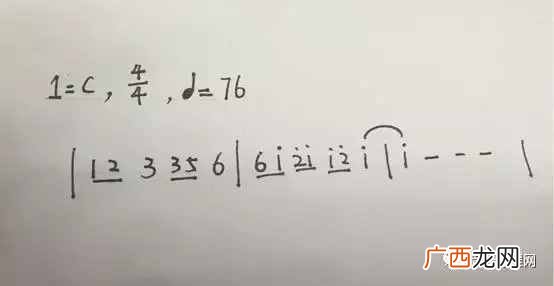 1=C, 4/4, ♩=76
| 1 2 3 3 5 6 | 6 i̇ 2̇ i̇ i̇ 2̇ i̇ | i̇ - - - |
广西龙网